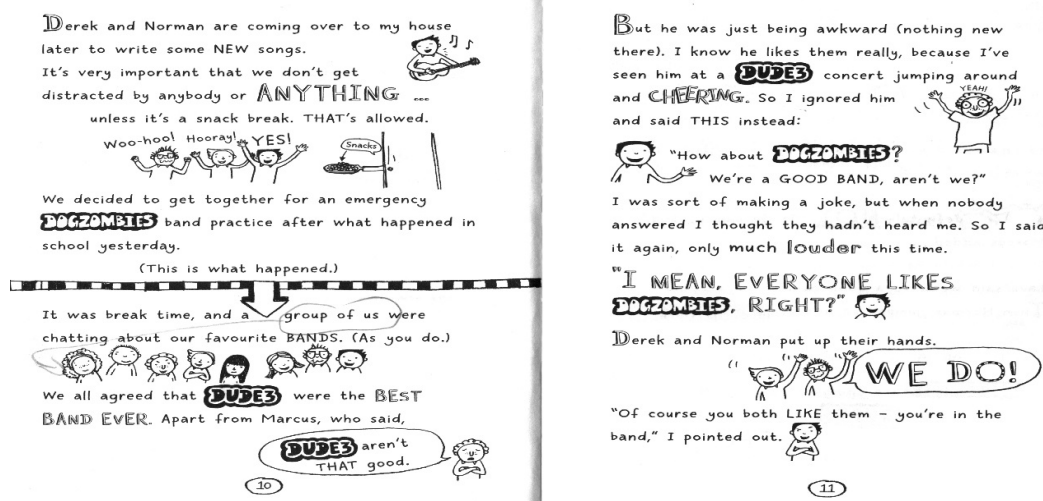 Derek and Norman are coming over to my house
later to write some NEW songs.
It's very important that we don't get
distracted by anybody or ANYTHING ...
unless it's a snack break. THAT's allowed.
Woo-hoo! Hooray! YES!
Snacks
We decided to get together for an emergency
DOGZOMBIES band practice after what happened in
school yesterday.
(This is what happened.)
It was break time, and a group of us were
chatting about our favourite BANDS. (As you do.)
We all agreed that DUDE3 were the BEST
BAND EVER. Apart from Marcus, who said,
DUDE3 aren't
THAT good.
10
But he was just being awkward (nothing new
there). I know he likes them really, because I've
seen him at a DUDE3 concert jumping around
and CHEERING. So I ignored him
YEAH!
and said THIS instead:
"How about DOGZOMBIES?
We're a GOOD BAND, aren't we?"
I was sort of making a joke, but when nobody
answered I thought they hadn't heard me. So I said
it again, only much louder this time.
"I MEAN, EVERYONE LIKES
DOGZOMBIES, RIGHT?"
Derek and Norman put up their hands.
WE DO!
"Of course you both LIKE them – you're in the
band," I pointed out.
11